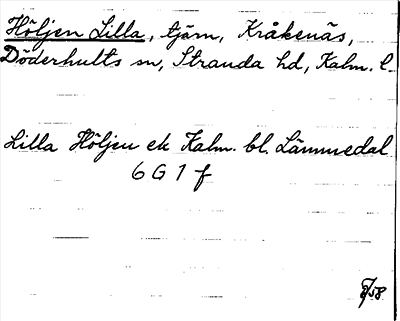 Höljen Lilla, tjärn, Kråkenäs,
Döderhults sn, Stranda hd, Kalm. l.
Lilla Höljen ek Kalm. bl. Lämmedal
6 G 1 f
/58